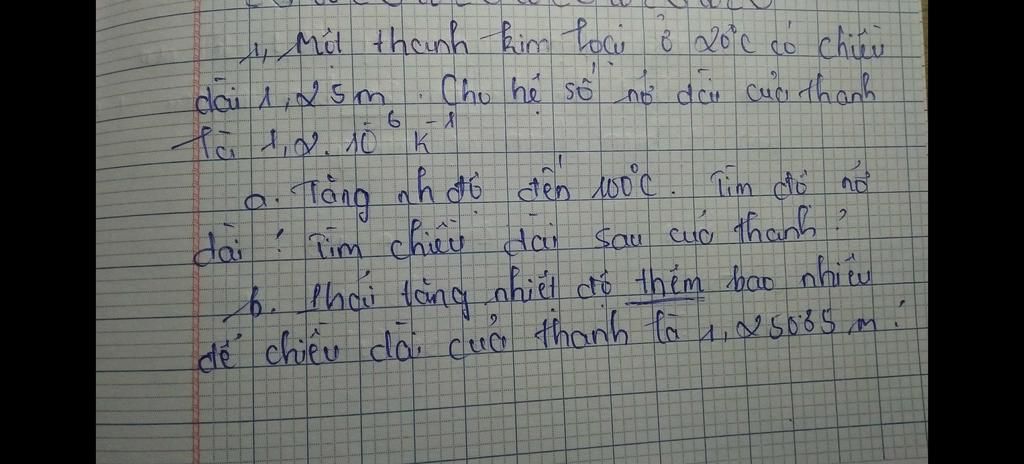 1, Một thanh kim loại ở 20°C có chiều
dài 1,25m. Cho hệ số nở dài của thanh
là 1,2.10⁶ K⁻¹
a. Tăng nh độ đến 100°C. Tìm độ nở
dài? Tìm chiều dài sau của thanh?
b. Phải tăng nhiệt độ thêm bao nhiêu
để chiều dài của thanh là 1,25035 m?